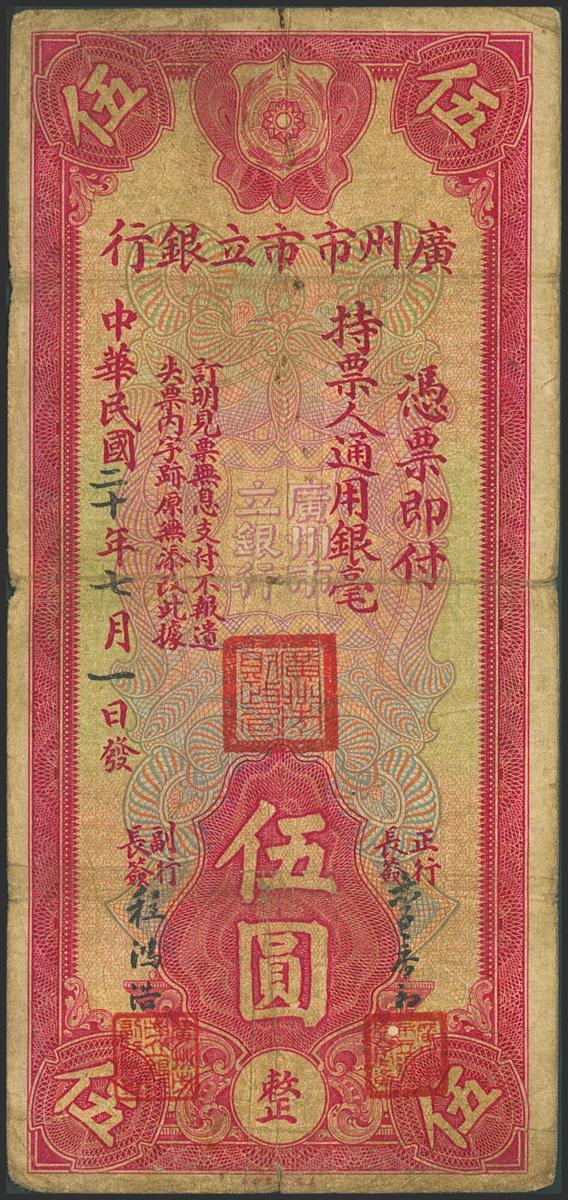 伍
伍
廣州市市立銀行
憑票即付
持票人通用銀毫
廣州市
立銀行
訂明見票無息支付不報遺
失票內字跡原無添改此據
中華民國二十年七月一日發
正行
長簽
伍圓
副行
長簽
伍
整
伍